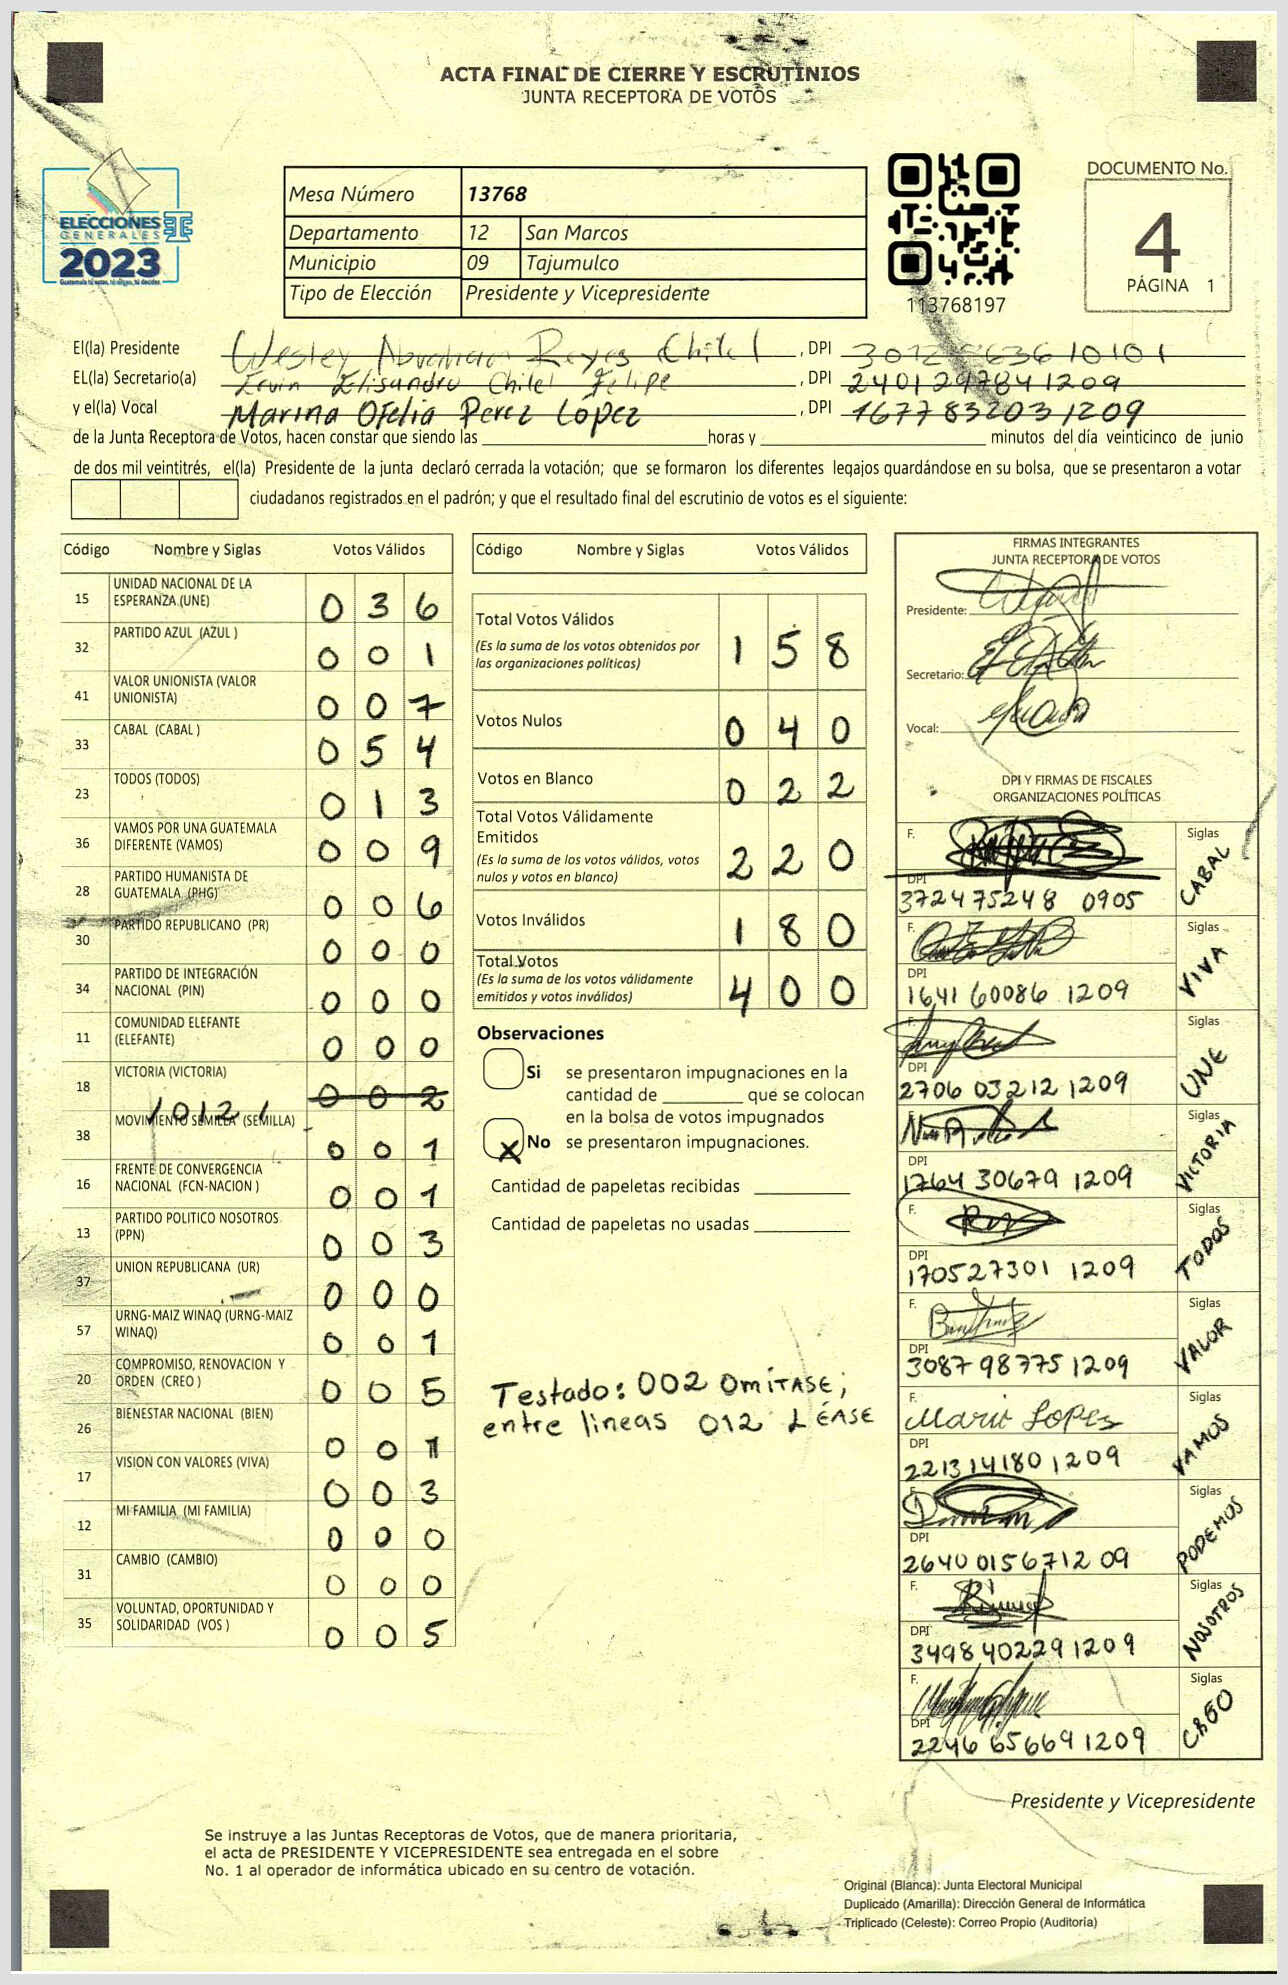 ACTA FINAL DE CIERRE Y ESCRUTINIOS
JUNTA RECEPTORA DE VOTOS
ELECCIONES
GENERALES
2023
Mesa Número 13768
Departamento 12 San Marcos
Municipio 09 Tajumulco
Tipo de Elección Presidente y Vicepresidente
113768197
DOCUMENTO No.
4
PÁGINA 1
El(la) Presidente Wesley Reyes Chilel, DPI
EL(la) Secretario(a) Ervin Elisandro Chilel Felipe, DPI 2401297841209
y el(la) Vocal Marina Ofelia Perez López, DPI 1677832031209
de la Junta Receptora de Votos, hacen constar que siendo las horas y minutos del día veinticinco de junio
de dos mil veintitrés, el(la) Presidente de la junta declaró cerrada la votación; que se formaron los diferentes legajos guardándose en su bolsa, que se presentaron a votar
ciudadanos registrados en el padrón; y que el resultado final del escrutinio de votos es el siguiente:
Código Nombre y Siglas Votos Válidos
15 UNIDAD NACIONAL DE LA ESPERANZA (UNE) 0 3 6
32 PARTIDO AZUL (AZUL ) 0 0 1
41 VALOR UNIONISTA (VALOR UNIONISTA) 0 0 7
33 CABAL (CABAL ) 0 5 4
23 TODOS (TODOS) 0 1 3
36 VAMOS POR UNA GUATEMALA DIFERENTE (VAMOS) 0 0 9
28 PARTIDO HUMANISTA DE GUATEMALA (PHG) 0 0 6
30 PARTIDO REPUBLICANO (PR) 0 0 0
34 PARTIDO DE INTEGRACIÓN NACIONAL (PIN) 0 0 0
11 COMUNIDAD ELEFANTE (ELEFANTE) 0 0 0
18 VICTORIA (VICTORIA) 0 0 2
/ 0 1 2 /
38 MOVIMIENTO SEMILLA (SEMILLA) 0 0 1
16 FRENTE DE CONVERGENCIA NACIONAL (FCN-NACION ) 0 0 1
13 PARTIDO POLITICO NOSOTROS (PPN) 0 0 3
37 UNION REPUBLICANA (UR) 0 0 0
57 URNG-MAIZ WINAQ (URNG-MAIZ WINAQ) 0 0 1
20 COMPROMISO, RENOVACION Y ORDEN (CREO ) 0 0 5
26 BIENESTAR NACIONAL (BIEN) 0 0 1
17 VISION CON VALORES (VIVA) 0 0 3
12 MI FAMILIA (MI FAMILIA) 0 0 0
31 CAMBIO (CAMBIO) 0 0 0
35 VOLUNTAD, OPORTUNIDAD Y SOLIDARIDAD (VOS ) 0 0 5
Código Nombre y Siglas Votos Válidos
Total Votos Válidos 1 5 8
(Es la suma de los votos obtenidos por
las organizaciones políticas)
Votos Nulos 0 4 0
Votos en Blanco 0 2 2
Total Votos Válidamente
Emitidos
(Es la suma de los votos válidos, votos
nulos y votos en blanco) 2 2 0
Votos Inválidos 1 8 0
Total Votos
(Es la suma de los votos válidamente
emitidos y votos inválidos) 4 0 0
Observaciones
Si se presentaron impugnaciones en la
cantidad de que se colocan
en la bolsa de votos impugnados
X No se presentaron impugnaciones.
Cantidad de papeletas recibidas
Cantidad de papeletas no usadas
Testado: 002 OMÍTASE;
entre lineas 012 LÉASE
FIRMAS INTEGRANTES
JUNTA RECEPTORA DE VOTOS
Presidente:
Secretario:
Vocal:
DPI Y FIRMAS DE FISCALES
ORGANIZACIONES POLÍTICAS
F. Siglas
DPI
372475248 0905 CABAL
F. Siglas
DPI
1641 60086 1209 VIVA
F. Siglas
DPI
2706 03212 1209 UNE
Siglas
DPI
1764 30679 1209 VICTORIA
F. Siglas
DPI
170527301 1209 TODOS
F. Siglas
DPI
3087 98775 1209 VALOR
F. Mario Lopez Siglas
DPI
221314180 1209 VAMOS
F. Siglas
DPI
2640 01567 12 09 PODEMOS
F. Siglas
DPI
3498 40229 1209 NOSOTROS
F. Siglas
DPI
2246 65669 1209 CREO
Presidente y Vicepresidente
Se instruye a las Juntas Receptoras de Votos, que de manera prioritaria,
el acta de PRESIDENTE Y VICEPRESIDENTE sea entregada en el sobre
No. 1 al operador de informática ubicado en su centro de votación.
Original (Blanca): Junta Electoral Municipal
Duplicado (Amarilla): Dirección General de Informática
Triplicado (Celeste): Correo Propio (Auditoría)